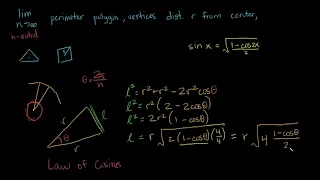 lim n→∞ perimeter polygon, vertices dist. r from center,
n-sided
sin x = √(1-cos2x / 2)
θ = 2π/n
l² = r² + r² - 2r² cosθ
l² = r² (2 - 2cosθ)
l² = 2r² (1 - cosθ)
l = r √(2 (1-cosθ) (4/4)) = r √(4 (1-cosθ)/2)
r
r
l
θ
r
Law of Cosines